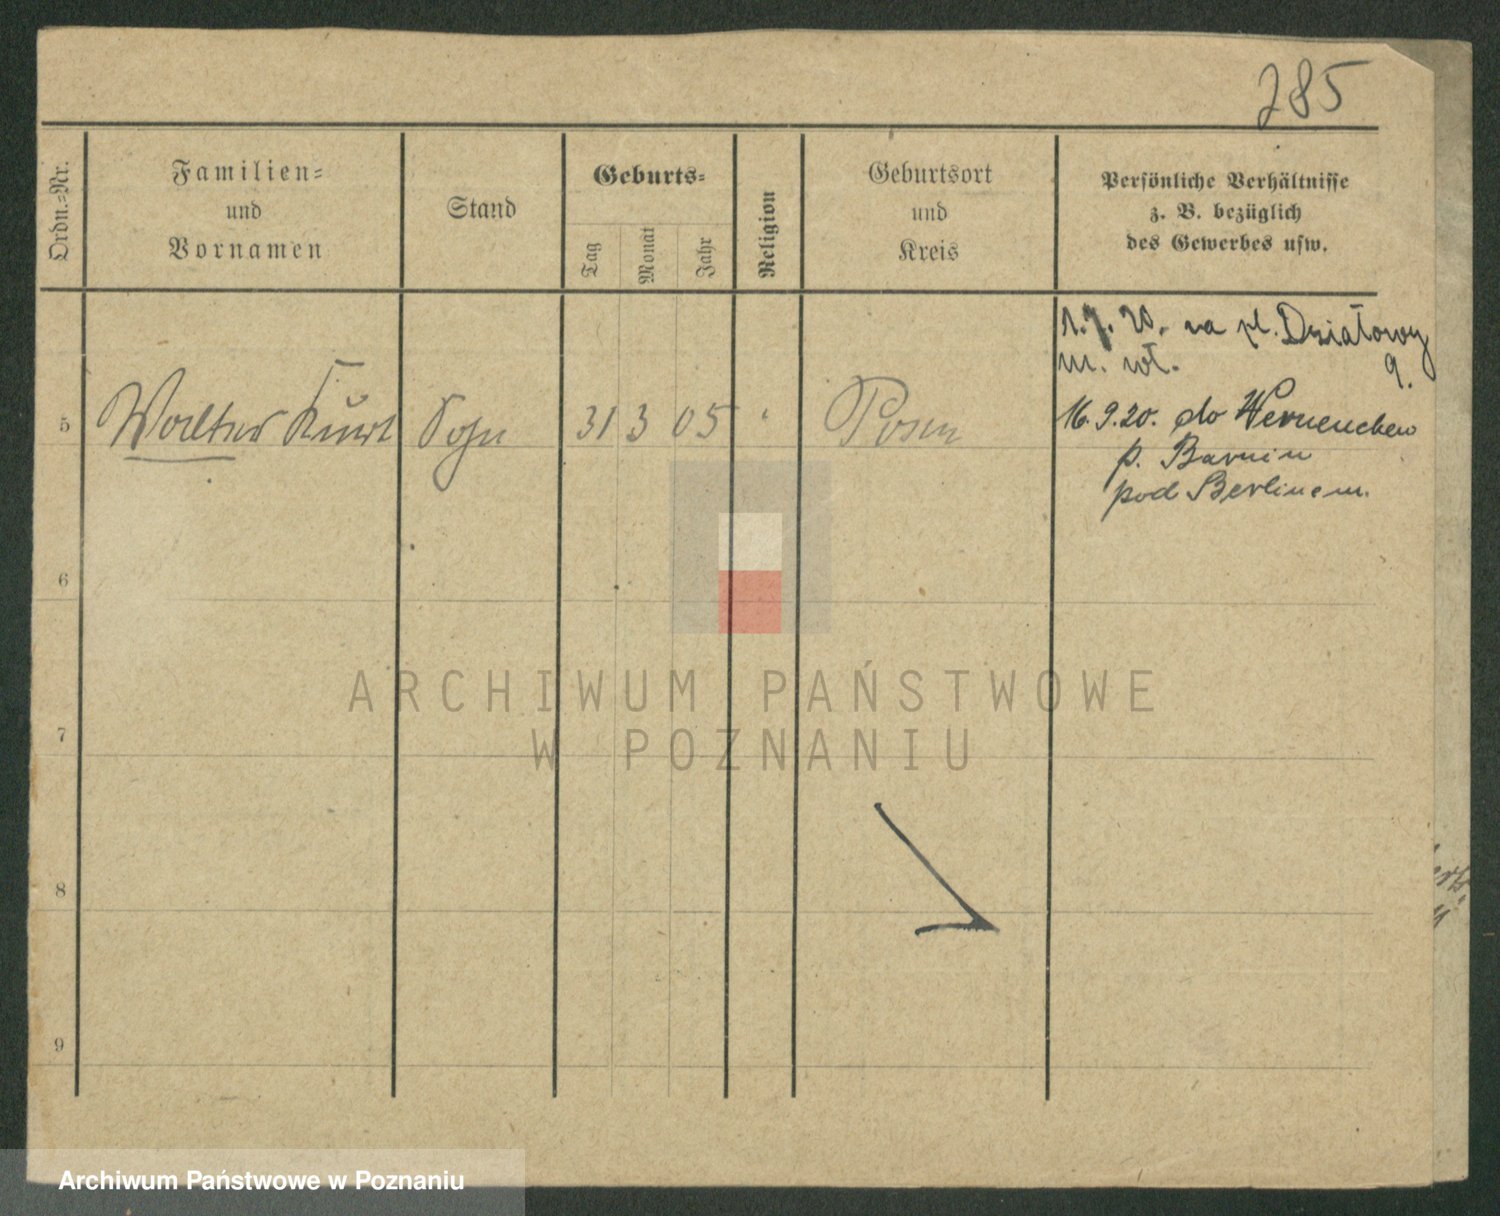 285
Ordn.-Nr.
Familien-
und
Vornamen
Stand
Geburts-
Tag
Monat
Jahr
Religion
Geburtsort
und
Kreis
Persönliche Verhältnisse
z. B. bezüglich
des Gewerbes usw.
1.7.20. na pl. Działowy
m. wł. 9.
5 Walter Kurt Sohn 31 3 05 " Posen
16.9.20. do Werneuchen
p. Barnim
pod Berlinem.
6
7
8
9
ARCHIWUM PAŃSTWOWE
W POZNANIU
Archiwum Państwowe w Poznaniu